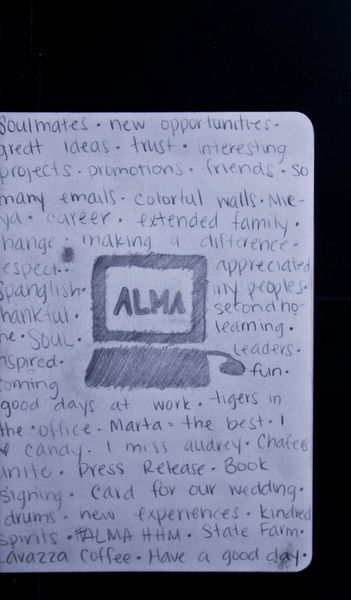 Soulmates · new opportunities ·
great ideas · trust · interesting
projects · promotions · friends · so
many emails · colorful walls · Nue-
ya · career · extended family ·
hange · making a difference ·
espect · appreciated
Spanglish · my peoples ·
hankful · second ho-
ALMA
me · Soul · learning ·
nspired · leaders ·
oming fun ·
good days at work · tigers in
the office · Marta = the best · I
candy · I miss audrey · Chafers
unite · Press Release · Book
Signing · Card for our wedding ·
drums · new experiences · kindred
spirits · #ALMA HHM · State Farm ·
Lavazza Coffee · Have a good day ·